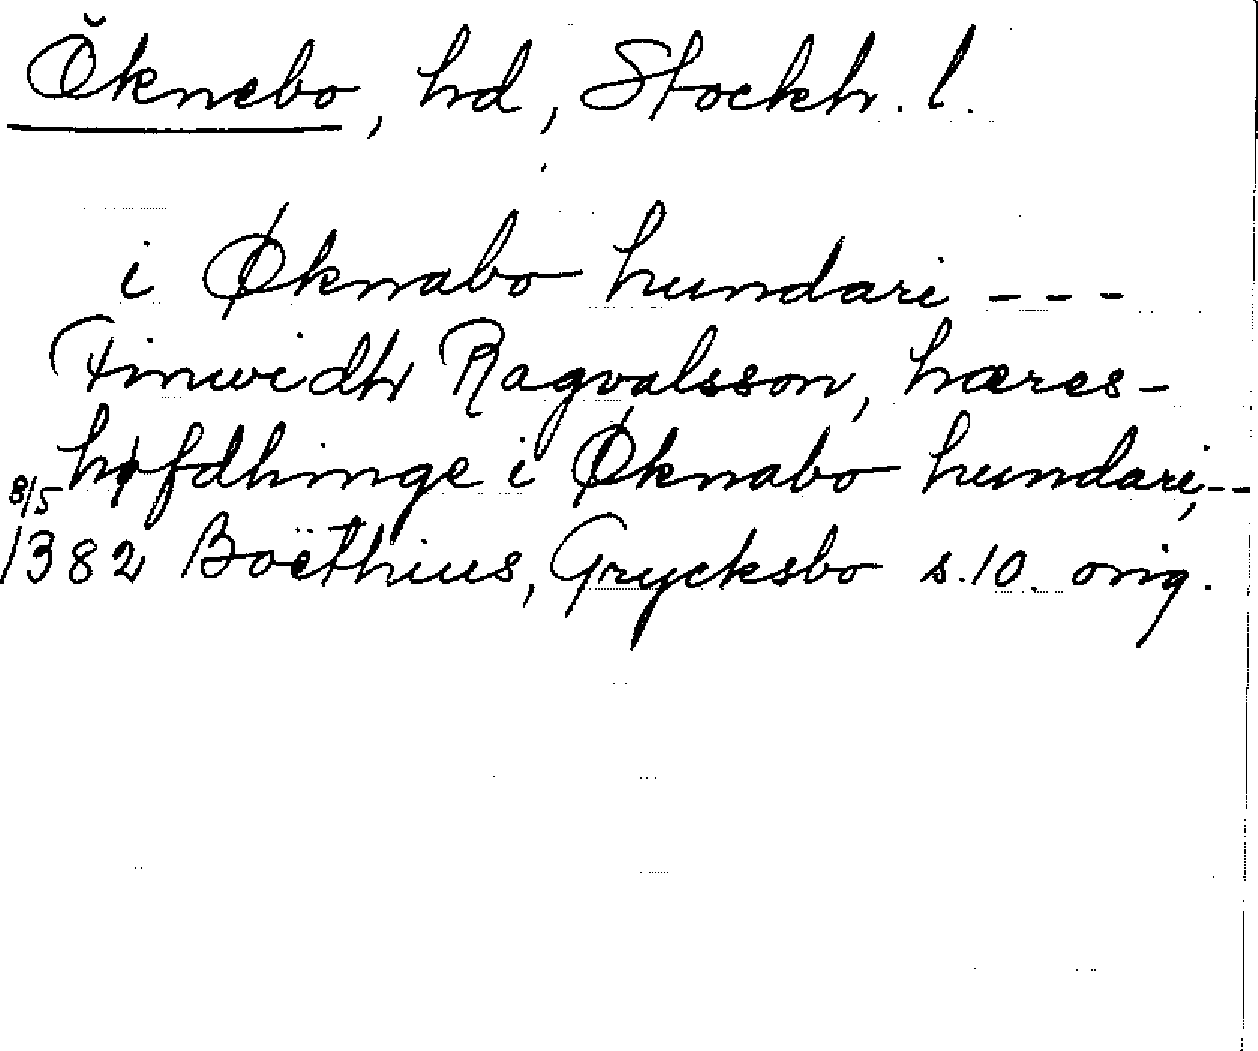 Öknebo, hd, Stockh. l.
i Øknabo hundari ---
Finwidh Ragvalsson, hæres-
høfdhinge i Øknabo hundari, --
8/5 1382 Boëthius, Grycksbo s. 10. orig.